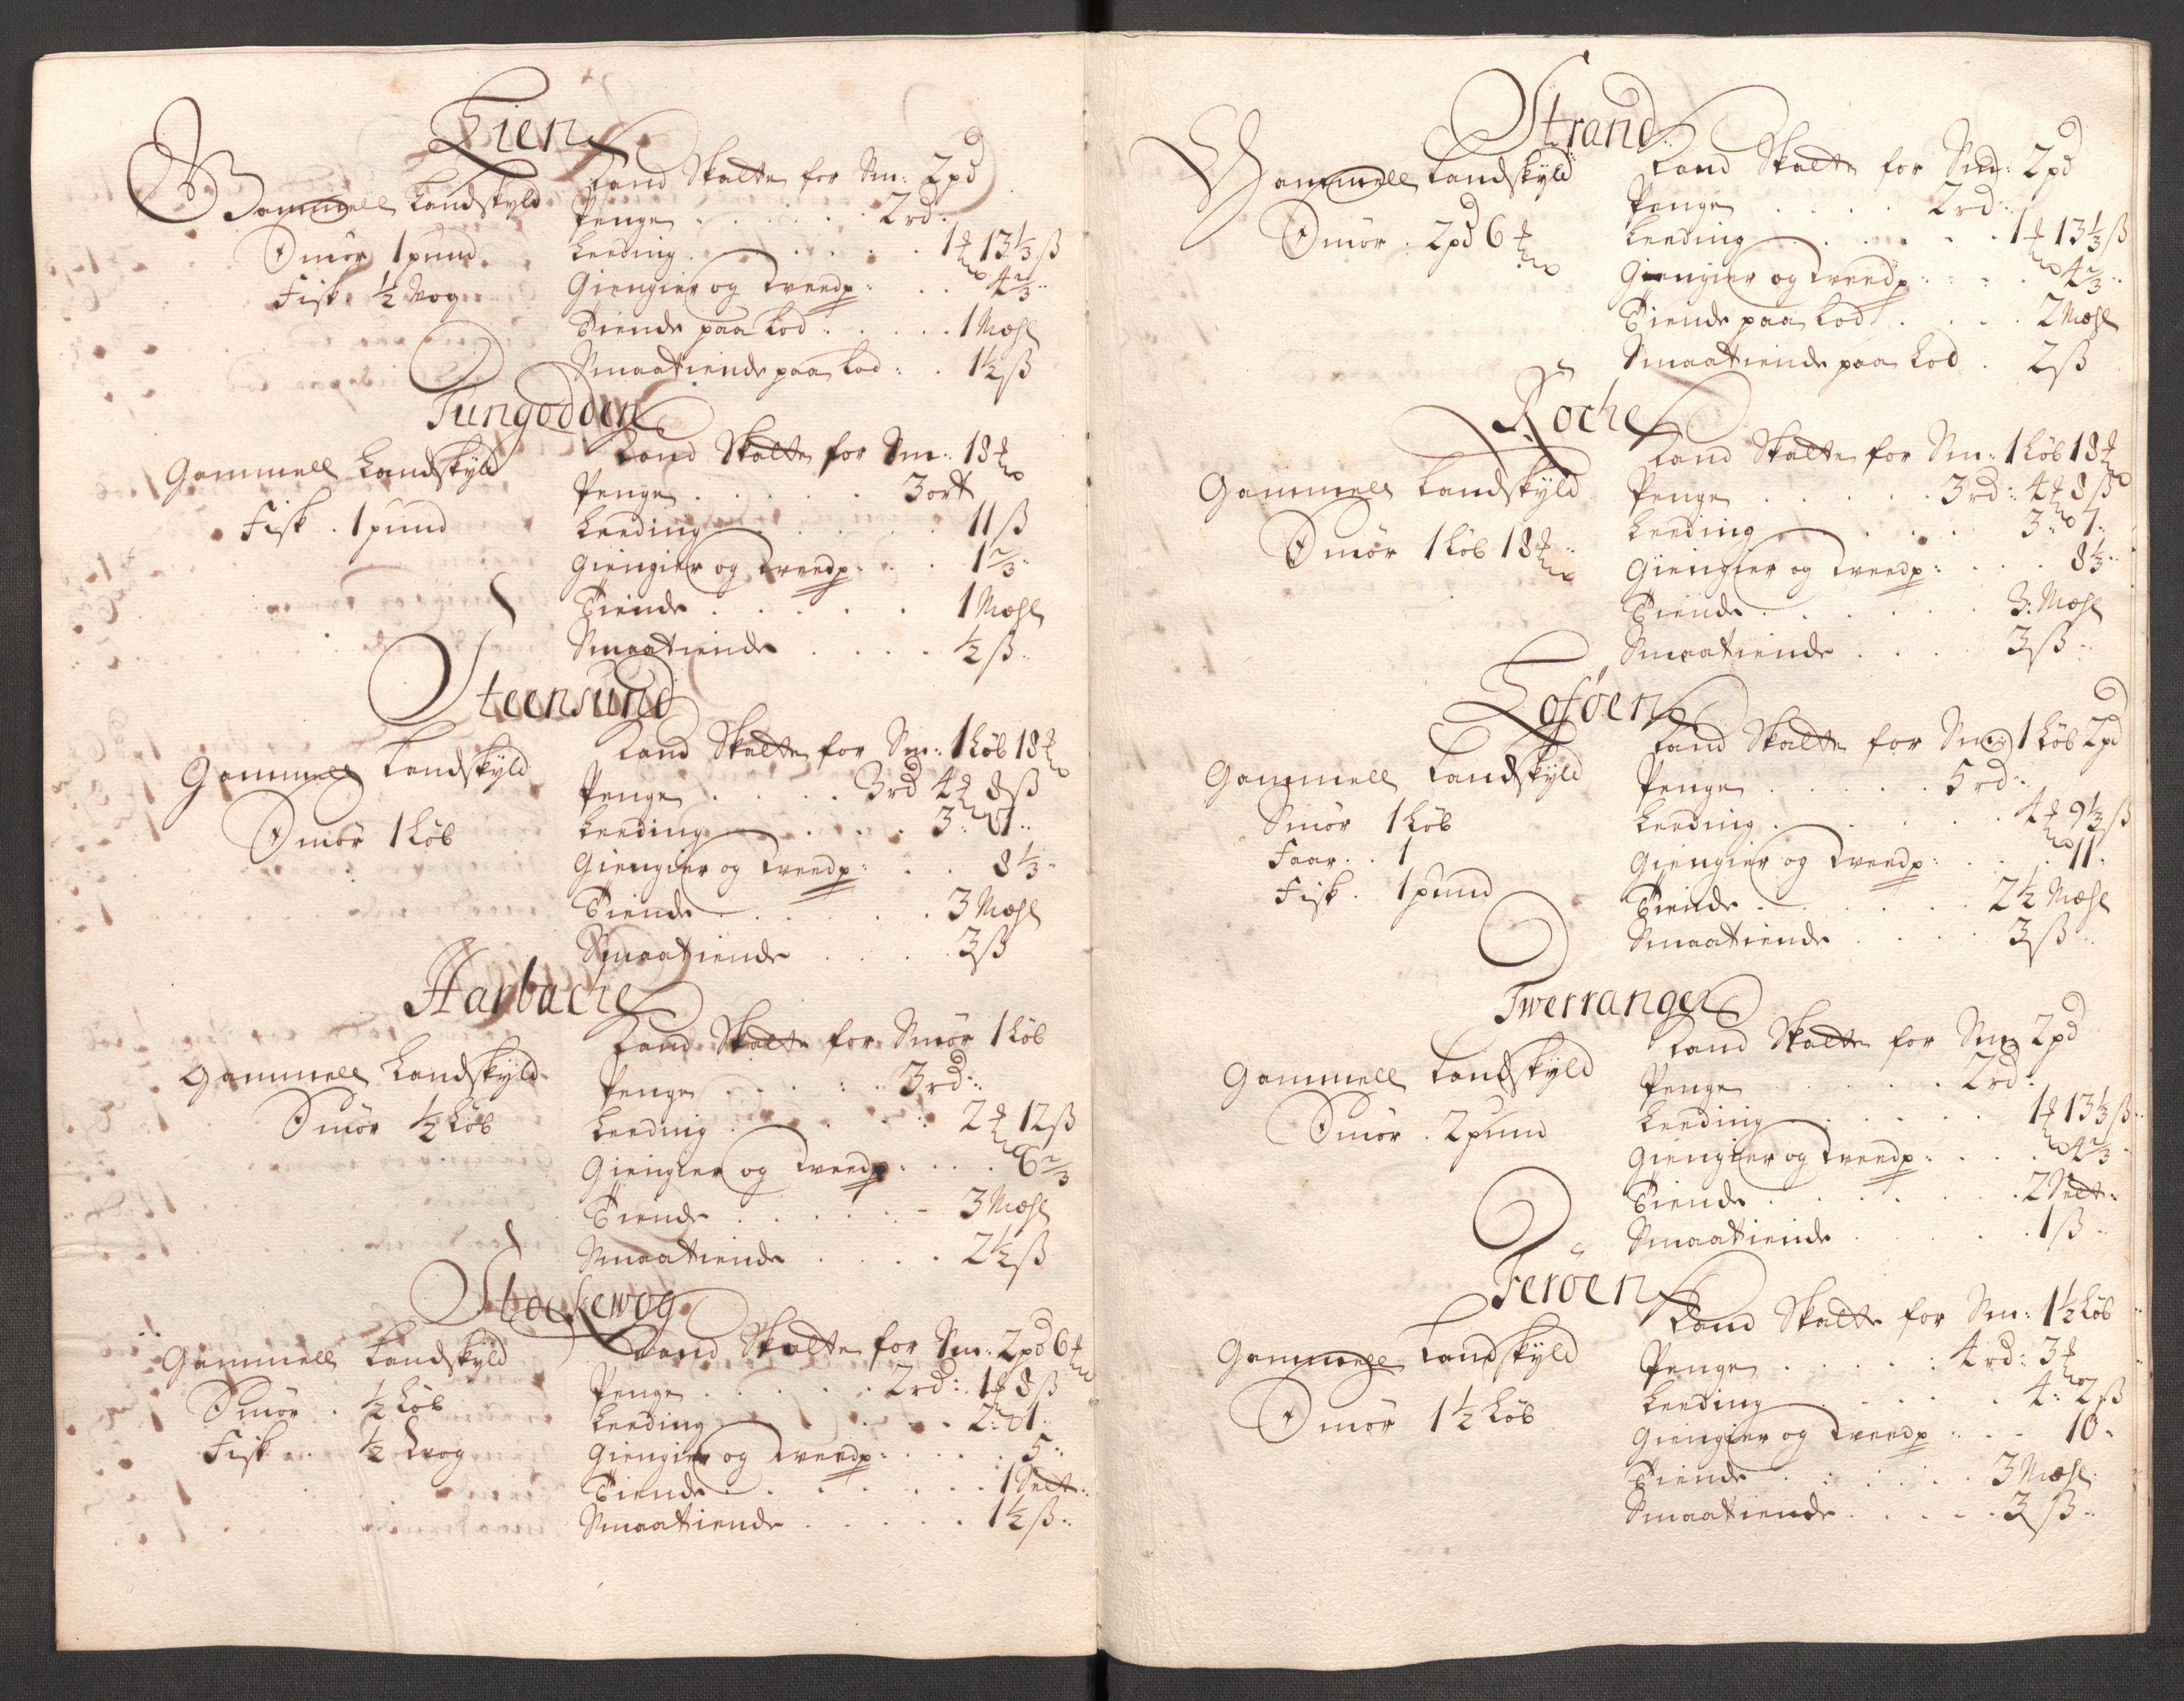 Lien
Gammell Landskyld
Smør 1 pund
Fisk ½ Wog
Land Skatten for Sm: 2 pd
Penge . . . . . . 2 rd:
Leeding . . . . . . 1 ₰ 13⅓ ß
Giengier og Treedp: . . 4⅔ ..
Tiende paa Lod : . . . . 1 Mæhl
Smaatiende paa Lod : . 1½ ß
Tungodden
Gammell Landskyld
Fisk . 1 pund
Land Skatten for Sm: 18 ₰
Penge . . . . . 3 ort
Leeding . . . . . 11 ß
Giengier og Treedp: . . . 1⅔ ..
Tiende . . . . . 1 Mæhl
Smaatiende . . . . ½ ß ..
Steensund
Gammell Landskyld
Smør 1 Løb
Land Skatten for Sm: 1 Løb 18 ₰
Penge . . . . 3 rd 4 ₰ 8 ß
Leeding . . . . 3: 7 ..
Giengier og Treedp: . . . 8⅓ ..
Tiende . . . . . . 3 Mæhl
Smaatiende . . . . 3 ß
Harbache
Gammell Landskyld
Smør ½ Løb
Land Skatte for Smør 1 Løb
Penge . . . . : . 3 rd ..
Leeding . . . . . : 2 ₰ 12 ß
Giengier og Treedp: . . . . 6⅔
Tiende . . . . . - 3 Mæhl
Smaatiende . . . . 2½ ß
Stockewog
Gammell Landskyld
Smør . ½ Løb
Fisk . . ½ Wog
Land Skatten for Sm: 2 pd 6 ₰
Penge . . . . . . 2 rd: 1 ₰ 8 ß
Leeding . . . . . 2: 1 ..
Giengier og Treedp: . . . . . 5 ..
Tiende . . . . . . . . 1 Sect ..
Smaatiende . . . . . 1½ ß ..
Strand
Gammell Landskyld
Smør . 2 pd 6 ₰
Land Skatte for Sm: 2 pd
Penge . . . . 2 rd ..
Leeding . . . . . . 1 ₰ 13⅓ ß
Giengier og Treedp: . . . . 4⅔ ..
Tiende paa Lod . . . . 2 Mæhl
Smaatiende paa Lod . 2 ß
Roche
Gammell Landskyld
Smør 1 Løb 18 ₰ ..
Land Skatten for Sm: 1 Løb 18 ₰
Penge . . . . . 3 rd: 4 ₰ 8 ß
Leeding . . . . 3: 7 ..
Giengier og Treedp: . . . . 8⅓ ..
Tiende . . . . . . 3: Mæhl
Smaatiende . . . . 3 ß ..
Losøen
Gammell Landskyld
Smør 1 Løb
Faar . . 1
Fisk . 1 pund
Land Skatten for Sm: 1 Løb 2 pd
Penge . . . . . 5 rd ..
Leeding . . . . . . 4 ₰ 9⅓ ß
Giengier og Treedp: . . . . 11 .
Tiende . . . . . . 2½ Mæhl
Smaatiende . . . . 3 ß ..
Twerranger
Gammell Landskyld
Smør . 2 pund
Land Skatten for Sm 2 pd
Penge . . . . . 2 rd .
Leeding . . . . . . 1 ₰ 13⅓ ß ..
Giengier og Treedp: . . . . 4⅔
Tiende . . . . . . . 2 Sect ..
Smaatiende . . . . . . 1 ß ..
Ferøen
Gammell Landskyld
Smør 1½ Løb
Land Skatte for Sm: 1½ Løb
Penge . . . . . : 4 rd: 3 ₰
Leeding . . . . . . 4: 2 ß
Giengier og Treedp: . . - 10 .
Tiende . : . . . . 3 Mæhl
Smaatiende . . . . . 3 ß ..